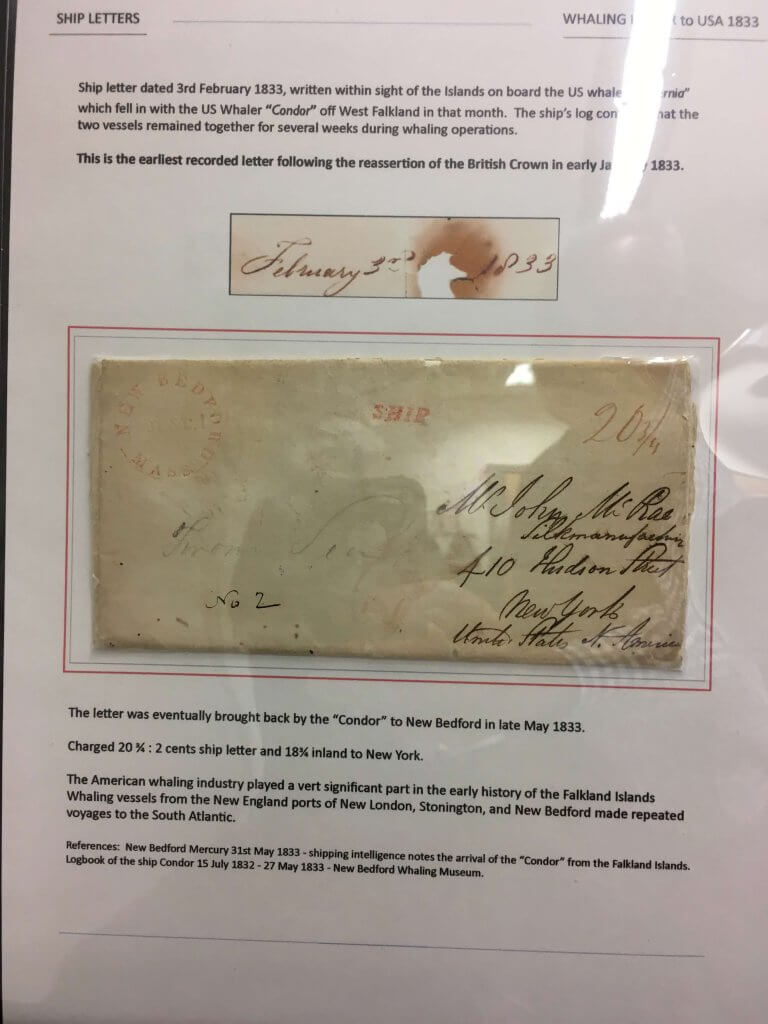 SHIP LETTERS
WHALING to USA 1833
Ship letter dated 3rd February 1833, written within sight of the Islands on board the US whale rnia"
which fell in with the US Whaler "Condor" off West Falkland in that month. The ship's log con hat the
two vessels remained together for several weeks during whaling operations.
This is the earliest recorded letter following the reassertion of the British Crown in early Ja 1833.
February 3rd 1833
NEW BEDFORD MASS
SHIP
20 3/4
Mr John McRae
Silkmanufacturer
410 Hudson Street
New York
United States N. America
From Sea
No 2
The letter was eventually brought back by the "Condor" to New Bedford in late May 1833.
Charged 20 ¾ : 2 cents ship letter and 18¾ inland to New York.
The American whaling industry played a vert significant part in the early history of the Falkland Islands
Whaling vessels from the New England ports of New London, Stonington, and New Bedford made repeated
voyages to the South Atlantic.
References: New Bedford Mercury 31st May 1833 - shipping intelligence notes the arrival of the "Condor" from the Falkland Islands.
Logbook of the ship Condor 15 July 1832 - 27 May 1833 - New Bedford Whaling Museum.